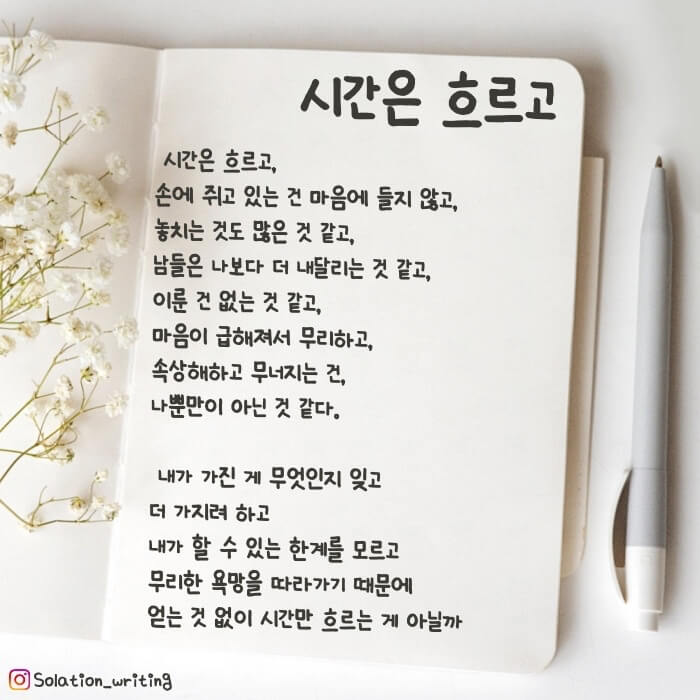 시간은 흐르고
시간은 흐르고,
손에 쥐고 있는 건 마음에 들지 않고,
놓치는 것도 많은 것 같고,
남들은 나보다 더 내달리는 것 같고,
이룬 건 없는 것 같고,
마음이 급해져서 무리하고,
속상해하고 무너지는 건,
나뿐만이 아닌 것 같다.
내가 가진 게 무엇인지 잊고
더 가지려 하고
내가 할 수 있는 한계를 모르고
무리한 욕망을 따라가기 때문에
얻는 것 없이 시간만 흐르는 게 아닐까
Solation_writing